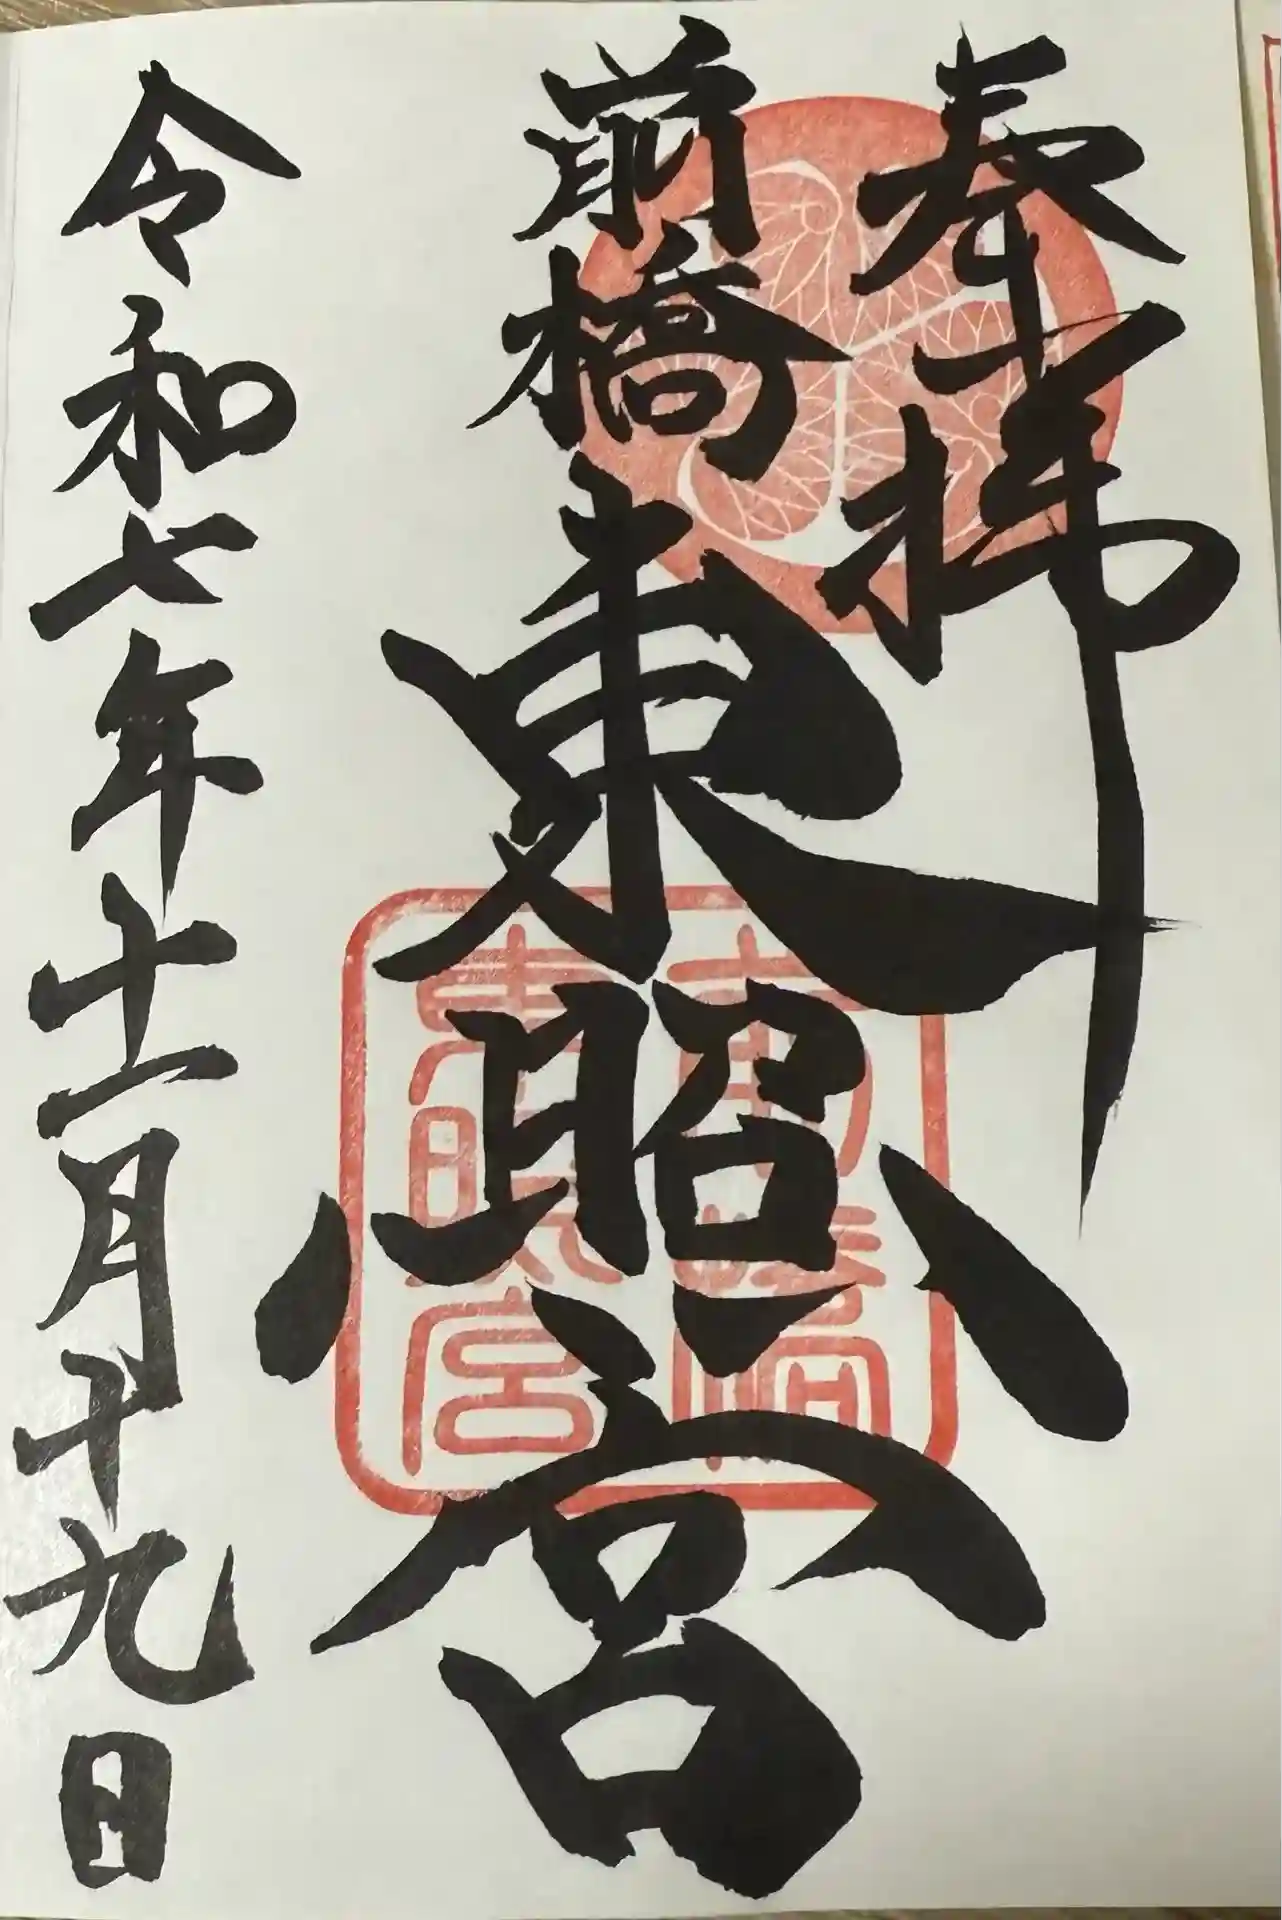 奉拝
前橋
東照宮
令和七年十一月十九日
前橋
東照宮